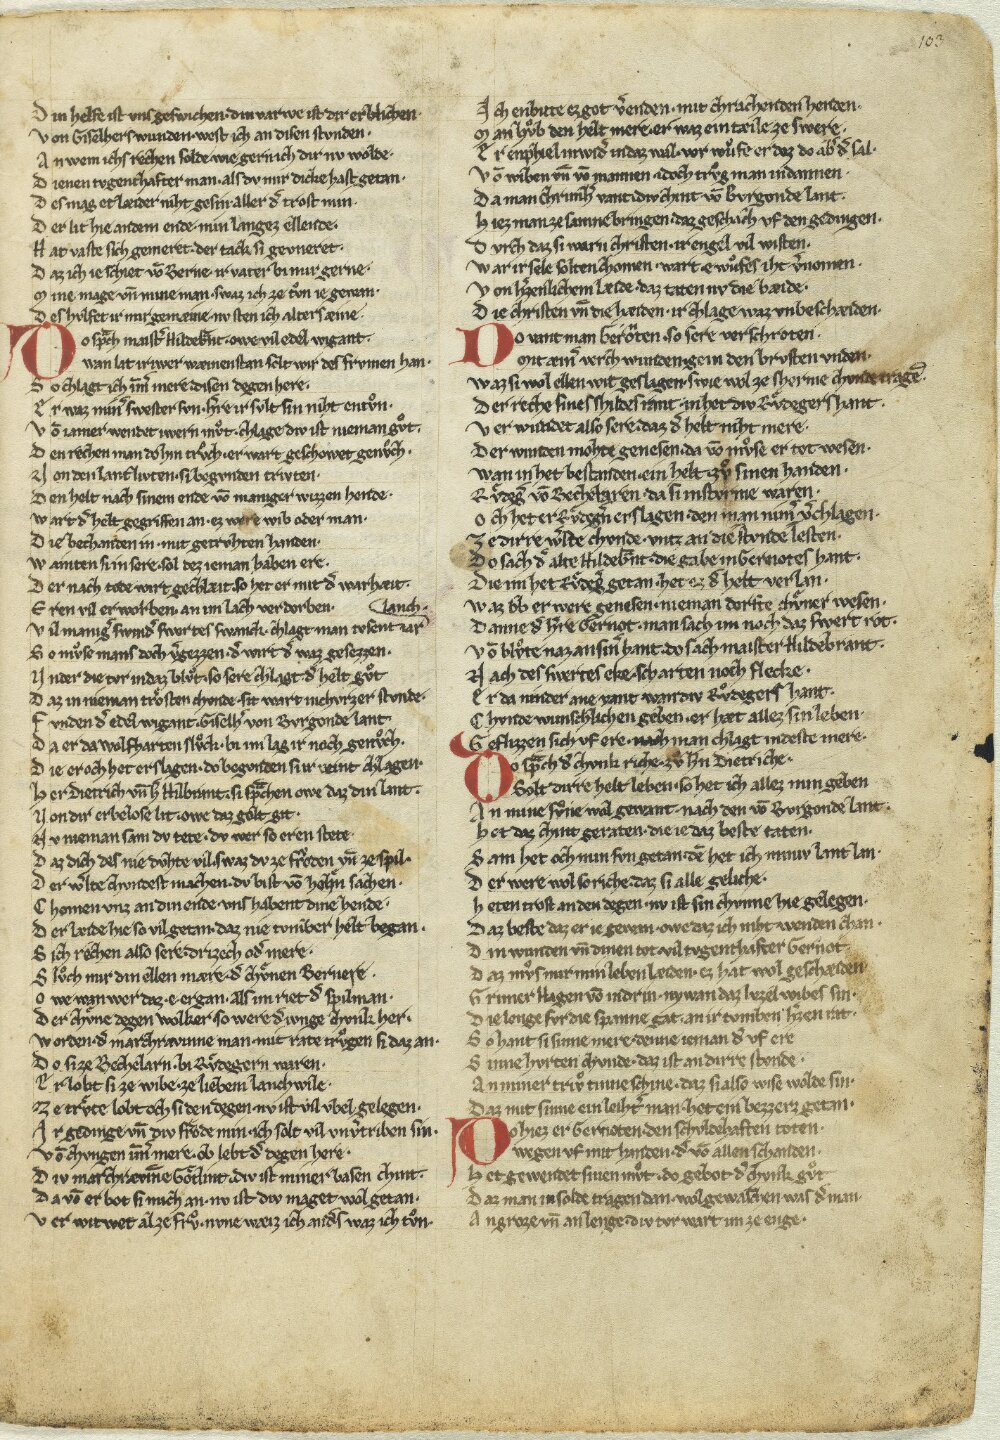 103
Din helfe ist vns geswichen · din varwe ist dir erblichen ·
Von Giselhers wunden · west ich an disen stvnden ·
An wem ichs rechen solde · wie gern ich dir nv wolde ·
Dienen tvgenthafter man · als dv mir dicke hast getan ·
Des mag et læider niht gesin · aller d̾ trost min ·
Der lit hie an dem ende · min langez ellende ·
Hat vaste sich gemeret · der tach si gevneret ·
Daz ich ie schiet vō Berne · ir varet bi mir gerne ·
Mine mage vn̄ mine man · swaz ich ze tv̊n ie gewan ·
Des hvlfet ir mir gemæine · nv sten ich alters æine ·
Do sp̾ch maist̾ Hildebn̾t · owe vil edel wigant ·
Wan lat ir iwer wæinen stan · solt wir des frvmen han ·
So chlagt ich im̄ mere disen degen here ·
Er was min̾ swester svn · h̾re ir svlt sin niht entv̊n ·
Vō iamer wendet iwern mv̊t · chlage div ist nieman gv̊t ·
Den rechen man do hin trv̊ch · er wart geschowet genv̊ch ·
Von den lantlivten · si begvnden trivten ·
Den helt nach sinem ende · vō maniger wizzen hende ·
Wart d̾ helt gegriffen an · ez were wib oder man ·
Die bechanden in · mit getrvhten handen ·
Wæinten si in sere · sol des ieman haben ere ·
Der nach tode wirt gechlæit · so het er mit d̾ warhæit ·
Eren vil erworben · an im lach verdorben ·
lanch ·
Vil manig̾ swind̾ swertes swanch · chlagt man tvsent iar
So mv̊se mans doch v̾gezzen · d̾ wirt d̾ waz gesezzen ·
Vnder die tvr in daz blv̊t · so sere chlagt d̾ helt gv̊t
Daz in nieman trösten chvnde · sit wart in chvrzer stvnde ·
Fvnden d̾ edel wigant · Giselh̾ von Bvrgonde lant
Da er da wolfharten slv̊ch · bi im lag ir noch genv̊ch ·
Die er och het erslagen · do begonden si ir vient chlagen ·
Her Dietrich vn̄ h̾ Hilbrant · si sp̾chen owe daz din lant ·
Von dir erbelose lit · owe daz golt git ·
Nv nieman sam dv tete · dv wer so eren stete
Daz dich des nie dvhte vil · swaz dv ze frevden vn̄ ze spil ·
Der w̾lte chvndest machen · dv bist vō helh̾n sachen ·
Chomen vnz an din ende · vns habent dine hende ·
Der læide hie so vil getan · daz nie tvmber helt began ·
Sich rechen also sere · drizech od̾ mere ·
Slv̊ch mir din ellen mære · d̾ chv̊nen Bernere ·
Owe wan wer daz · e · ergan · als im riet d̾ spilman ·
Der chv̊ne degen wolker · so were d̾ ivnge chvnik her ·
Worden · d̾ marchravinne man · mit rate trv̊gen si daz an ·
Do si ze Bechelarn · bi Rv̊degern waren ·
Er lobt si ze wibe · ze liebem lanchwile ·
Ze trv̊te lobt och si den degen · nv ist vil vbel gelegen ·
Ir gedinge vn̄ div frode min · ich solt vil vnv̾triben sin ·
Vō chvngen im̄ mere · ob lebt d̾ degen here ·
Div marchravin̄e Götlint · div ist miner basen chint ·
Da vō er bot si mich an · nv ist div maget wol getan ·
Verwitwet al ze frv̊ · nvne wæiz ich and̾s waz ich tv̊n ·
Ich enbute ez got v̾enden · mit chrachenden henden ·
Man hv̊b den helt mere · er waz ein tæile ze swere ·
Er enphiel in wid̾ in daz wal · wr wv̊fe er doz do ab̾ d̾ sal ·
Vō wiben vn̄ vō mannen · idoch trv̊g man in dannen ·
Da man Chrimh̾ vant · div chint vō Bvrgonde lant ·
Hiez man ze samne bringen · daz geschach vf den gedingen ·
Dvrch daz si warn christen · ir engel vil wisten ·
War ir sele solten chomen · wart e wv̊fes iht v̾nomen ·
Von h̾zenlichem læide · daz taten nv die bæide ·
Die christen vn̄ die hæiden · ir chlage waz vnbeschæiden ·
Do vant man Gernöten · so sere verschroten ·
Mit æim̾ verch wunden · gein den brvsten vnden ·
Waz si wol ellen wit geslagen · swie wol ze sherme chvnde tragē
Der reche sines shildes rant · in het div Rv̊degers hant ·
Verwundet also sere · daz d̾ helt niht mere ·
Der wunden mohte genesen · da vō mv̊se er tot wesen ·
Wan in het bestanden · ein helt zv̊ sinen handen ·
Rv̊deg̾ vō Bechelaren · da si in stvrme waren ·
Och het er Rv̊deg̾n erslagen · den man nim̾ v̾chlagen ·
Ze dirre w̾lte chvnde · vntz an die stvnde lesten ·
Do sach d̾ alte Hildebn̾t · die gabe in Gernotes hant ·
Die im het Rv̊deg̾ getan · het ez d̾ helt verlan ·
Waz ob er were genesen · nieman dorfte chv̊ner wesen ·
Danne d̾ h̾re Gernot · man sach im noch daz swert rot ·
Vō blv̊te naz an sin̾ hant · do sach maister Hildebrant ·
Nach des swertes eke · scharten noch flecke ·
Er da ninder ane vant wan div Rv̊degers hant ·
Chvnde wunschlichen geben · er het allez sin leben ·
Geflizzen sich vf ere · nach man chlagt in deste mere ·
Do sp̾ch d̾ chvnk riche · zv̊ h̾n Dietriche ·
Solt dirre helt leben · so het ich allez min geben
An mine frv̊ne wol gewant · nach den vō Bvrgonde lant ·
Het daz chint geraten · die ie daz beste taten ·
Sam het och min svn getan · dē het ich miniv lant lan ·
Der were wol so riche · daz si alle geliche ·
Heten trost an den degen · nv ist sin chvnne hie gelegen ·
Daz beste daz er ie gewan · owe daz ich niht wenden chan ·
Din wunden vn̄ dinen tot · vil tvgenthafter Gernot ·
Daz mv̊s mir min leben læiden · ez hat wol geschæiden ·
Grimer Hagen vō in drin · nv wan daz lvzel wibes sin ·
Die lenge fvr die spanne gat · an ir tvmben h̾zen rat ·
So hant si sinne mere · denne ieman d̾ vf ere
Sinne hvrten chvnde · daz ist an dirre stvnde ·
An miner triv̊tinne schine · daz si also wise wolde sin ·
Daz mit sinne ein liht̾ man · het ein bezzerz getan ·
Do hiez er Gernoten · den schvldehaften toten ·
Wegen vf mit handen · d̾ vō allen schanden ·
Het gewendet sinen mv̊t · do gebot d̾ chvnk gv̊t
Daz man in solde tragen dan · wol gewahsen was d̾ man ·
An groze vn̄ an lenge · div tvr wart im ze enge ·